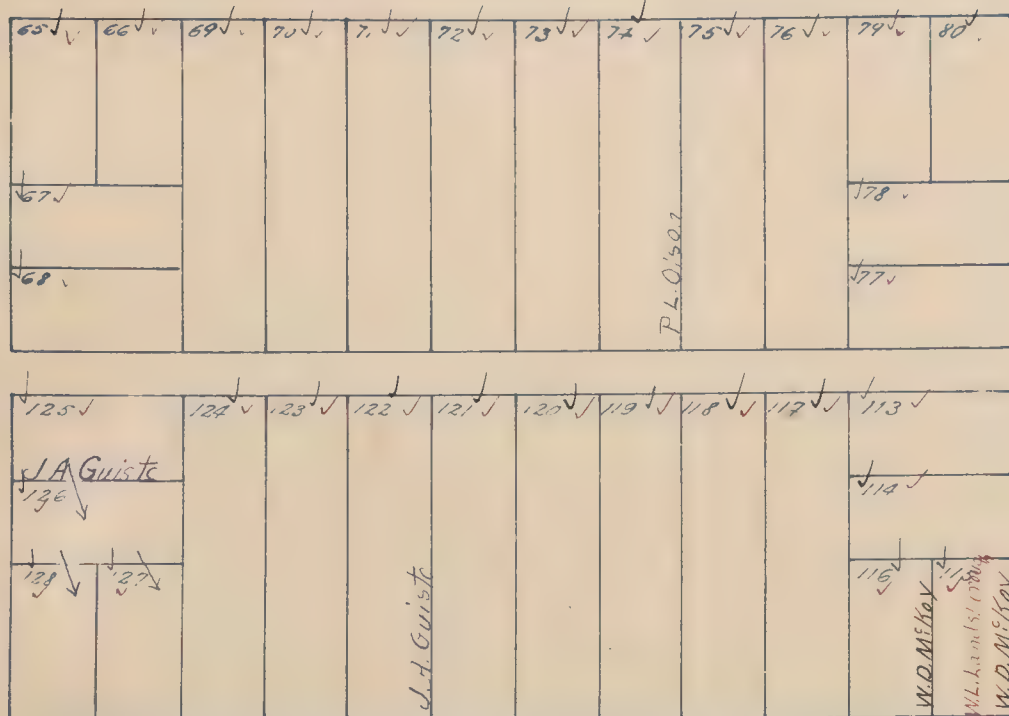 65 66 69 70 71 72 73 74 75 76 79 80
67 78
68 77
P L. Olson
125 124 123 122 121 120 119 118 117 113
J A Guiste
126 114
128 127 116 115
J. A. Guiste
W.D. McKoy
W.L.
W.D. McKoy